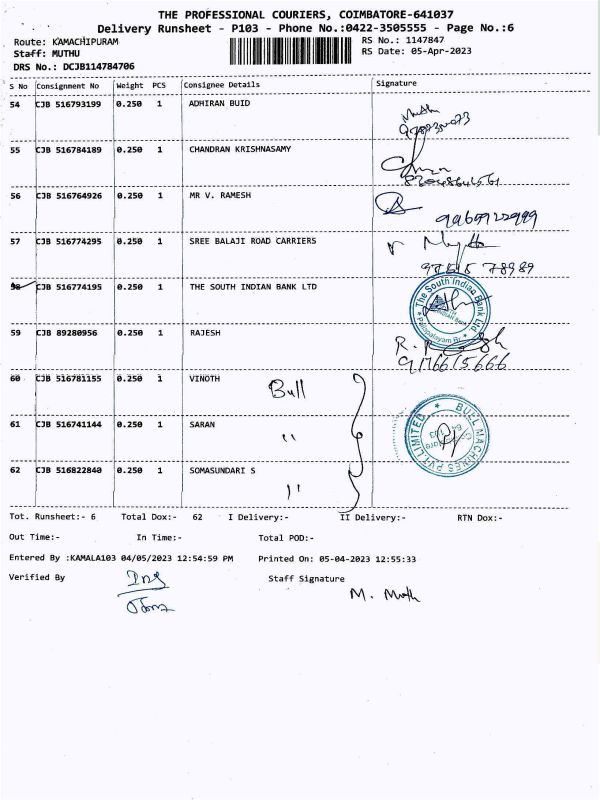 THE PROFESSIONAL COURIERS, COIMBATORE-641037
Delivery Runsheet - P103 - Phone No.:0422-3505555 - Page No.:6
Route: KAMACHIPURAM RS No.: 1147847
Staff: MUTHU RS Date: 05-Apr-2023
DRS No.: DCJB114784706
S No Consignment No Weight PCS Consignee Details Signature
54 CJB 516793199 0.250 1 ADHIRAN BUID
55 CJB 516784189 0.250 1 CHANDRAN KRISHNASAMY
56 CJB 516764926 0.250 1 MR V. RAMESH
57 CJB 516774295 0.250 1 SREE BALAJI ROAD CARRIERS
58 CJB 516774195 0.250 1 THE SOUTH INDIAN BANK LTD
The South Indian Bank Ltd.
59 CJB 89280956 0.250 1 RAJESH
9176615666
60 CJB 516781155 0.250 1 VINOTH Bull
61 CJB 516741144 0.250 1 SARAN "
BULL MACHINES PVT LIMITED
62 CJB 516822840 0.250 1 SOMASUNDARI S "
Tot. Runsheet:- 6 Total Dox:- 62 I Delivery:- II Delivery:- RTN Dox:-
Out Time:- In Time:- Total POD:-
Entered By :KAMALA103 04/05/2023 12:54:59 PM Printed On: 05-04-2023 12:55:33
Verified By Staff Signature
M. Muth